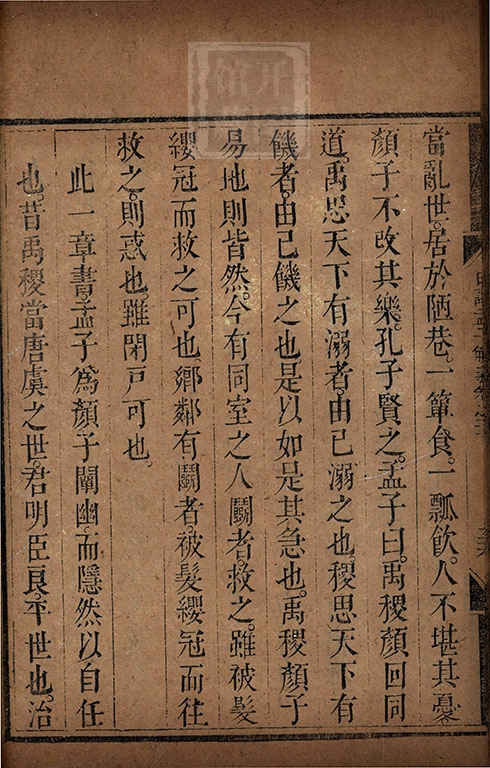 當亂世。居於陋巷。一簞食。一瓢飲。人不堪其憂
顏子不改其樂。孔子賢之。孟子曰。禹稷顏回同
道。禹思天下有溺者。由己溺之也。稷思天下有
饑者。由己饑之也。是以如是其急也。禹稷顏子
易地則皆然。今有同室之人鬭者。救之。雖被髮
纓冠而救之可也。鄉鄰有鬭者。被髮纓冠而往
救之。則惑也。雖閉戶可也。
此一章書。孟子爲顏子闡幽。而隱然以自任
也。昔禹稷當唐虞之世。君明臣良。平世也。治